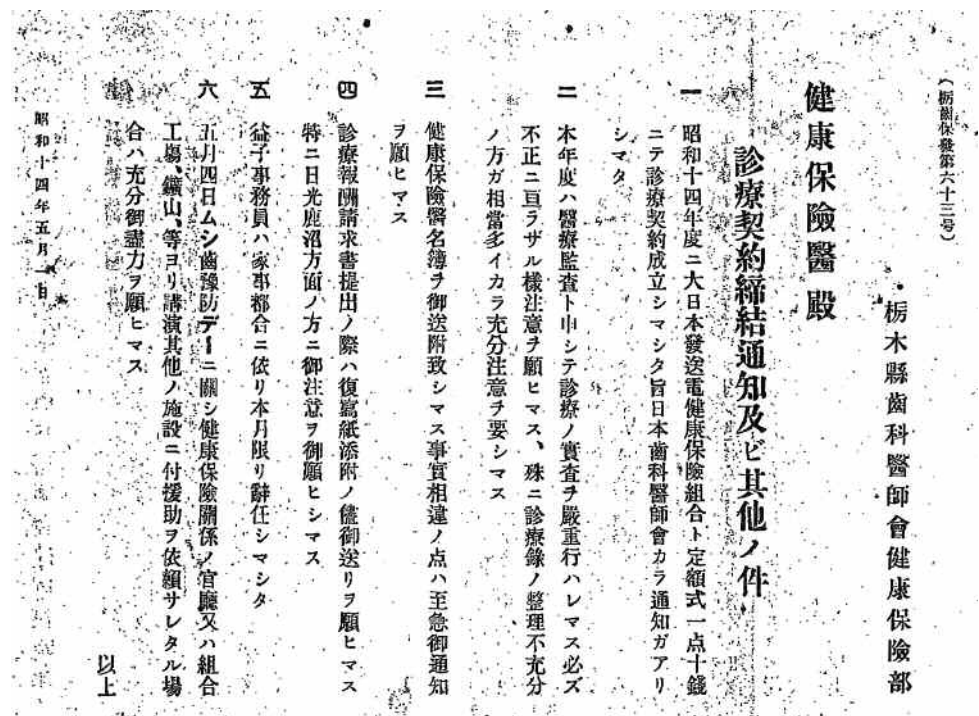 （栃齒保發第六十三号）
栃木縣齒科醫師會健康保險部
健康保險醫殿
診療契約締結通知及ビ其他ノ件
一 昭和十四年度ニ大日本發送電健康保險組合ト定額式一点十錢
ニテ診療契約成立シマシタ旨日本齒科醫師會カラ通知ガアリ
シマタ
二 本年度ハ醫療監査ト申シテ診療ノ實査ヲ嚴重行ハレマス必ズ
不正ニ亘ラザル樣注意ヲ願ヒマス、殊ニ診療錄ノ整理不充分
ノ方ガ相當多イカラ充分注意ヲ要シマス
三 健康保險醫名簿ヲ御送附致シマス事實相違ノ点ハ至急御通知
ヲ願ヒマス
四 診療報酬請求書提出ノ際ハ復寫紙添附ノ儘御送リヲ願ヒマス
特ニ日光鹿沼方面ノ方ニ御注意ヲ御願ヒシマス
五 益子事務員ハ家事都合ニ依リ本月限リ辭任シマシタ
六 五月四日ムシ齒豫防デーニ關シ健康保險關係ノ官廳又ハ組合
工場、鑛山、等ヨリ講演其他ノ施設ニ付援助ヲ依賴サレタル場
合ハ充分御盡力ヲ願ヒマス
以上
昭和十四年五月一日